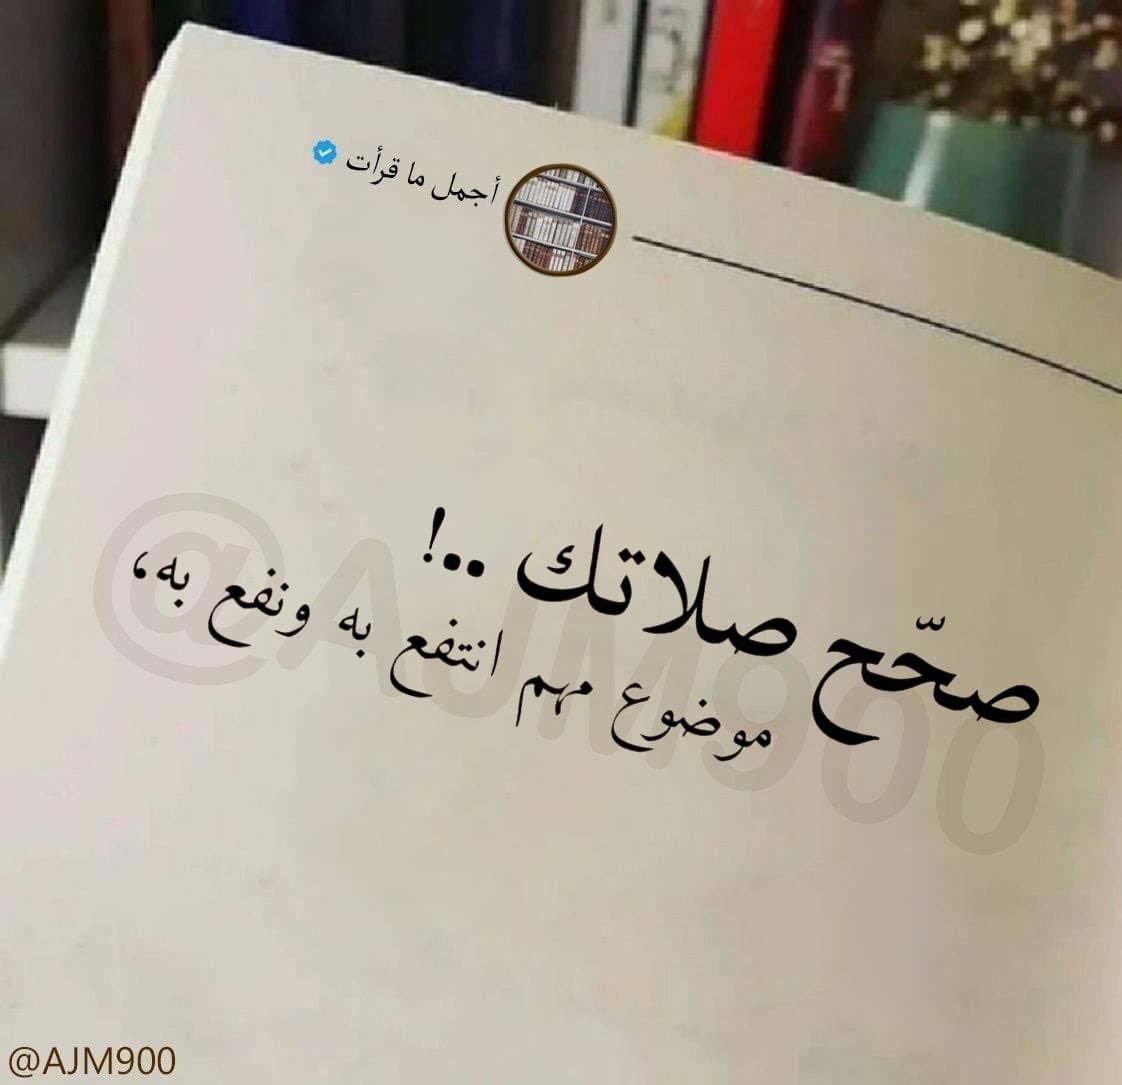 أجمل ما قرأت
صحّح صلاتك ..!
موضوع مهم انتفع به ونفع به،
@AJM900
@AJM900